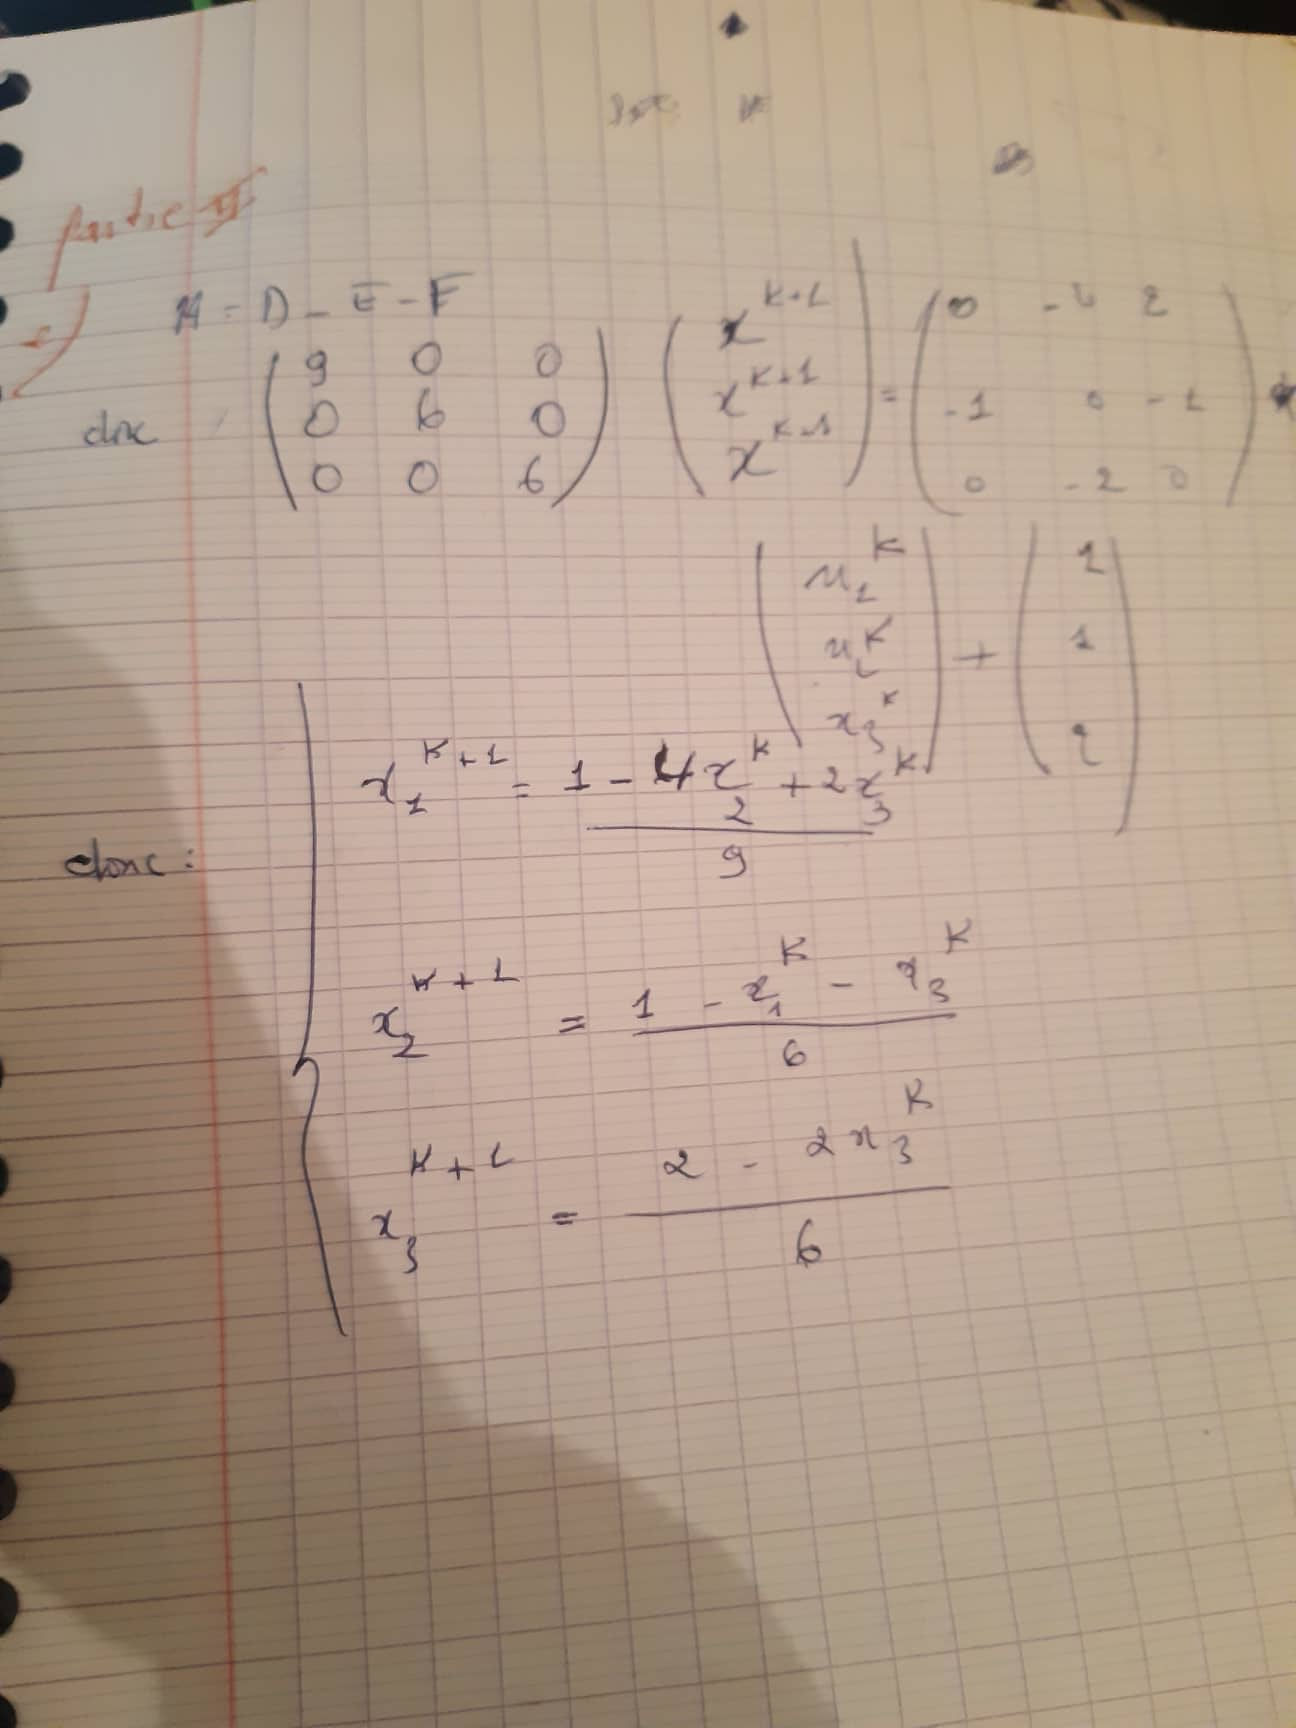 Partie II
A = D - E - F
donc ( 9 0 0 ) ( x^{k+1} ) = ( 0 -4 2 )
( 0 6 0 ) ( x^{k+1} ) ( -1 0 -1 )
( 0 0 6 ) ( x^{k+1} ) ( 0 -2 0 )
( x_1^k ) + ( 1 )
( x_2^k ) ( 1 )
( x_3^k ) ( 2 )
donc :
x_1^{k+1} = (1 - 4x_2^k + 2x_3^k) / 9
x_2^{k+1} = (1 - x_1^k - x_3^k) / 6
x_3^{k+1} = (2 - 2x_3^k) / 6